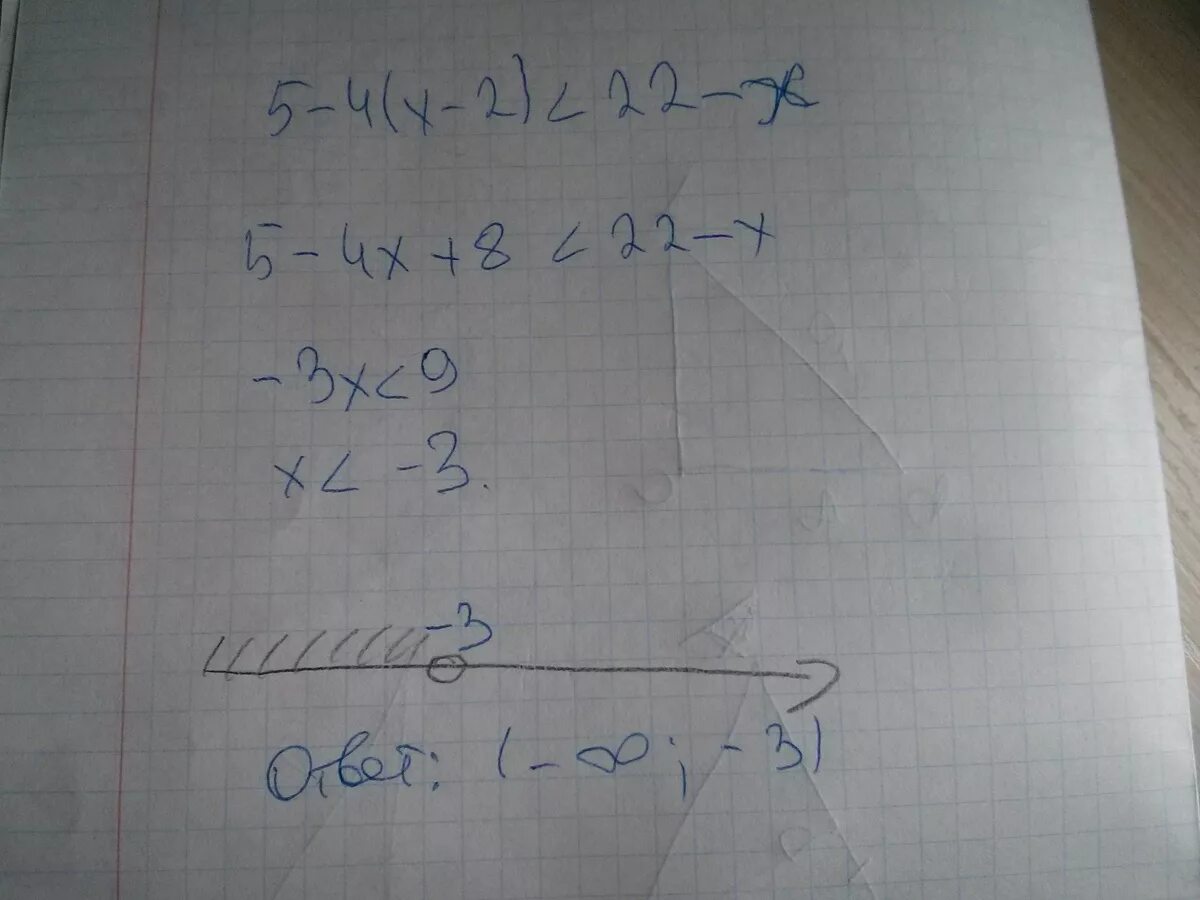 5-4(x-2)<22-x
5-4x+8<22-x
-3x<9
x<-3.
-3
Ответ: (-∞; -3)